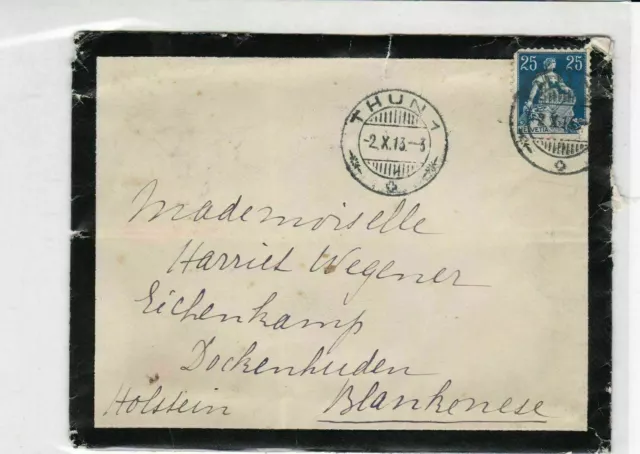 25 25
HELVETIA
THUN 1
-2.X.13.-3
2.X.13
Mademoiselle
Harriet Wegener
Eichenkamp
Dockenhuden
Holstein Blankenese